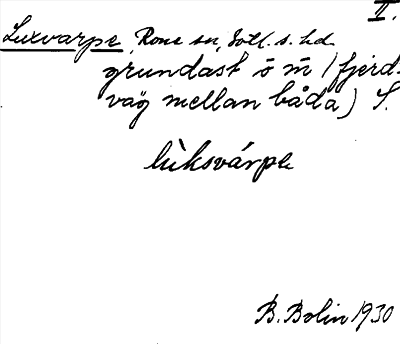 II.
Luxvarpe, Rone sn, Gotl. s. hd.
grundast ö m̄ (fjerd-
väg mellan båda) S.
lùksvárpe
B. Bolin 1930